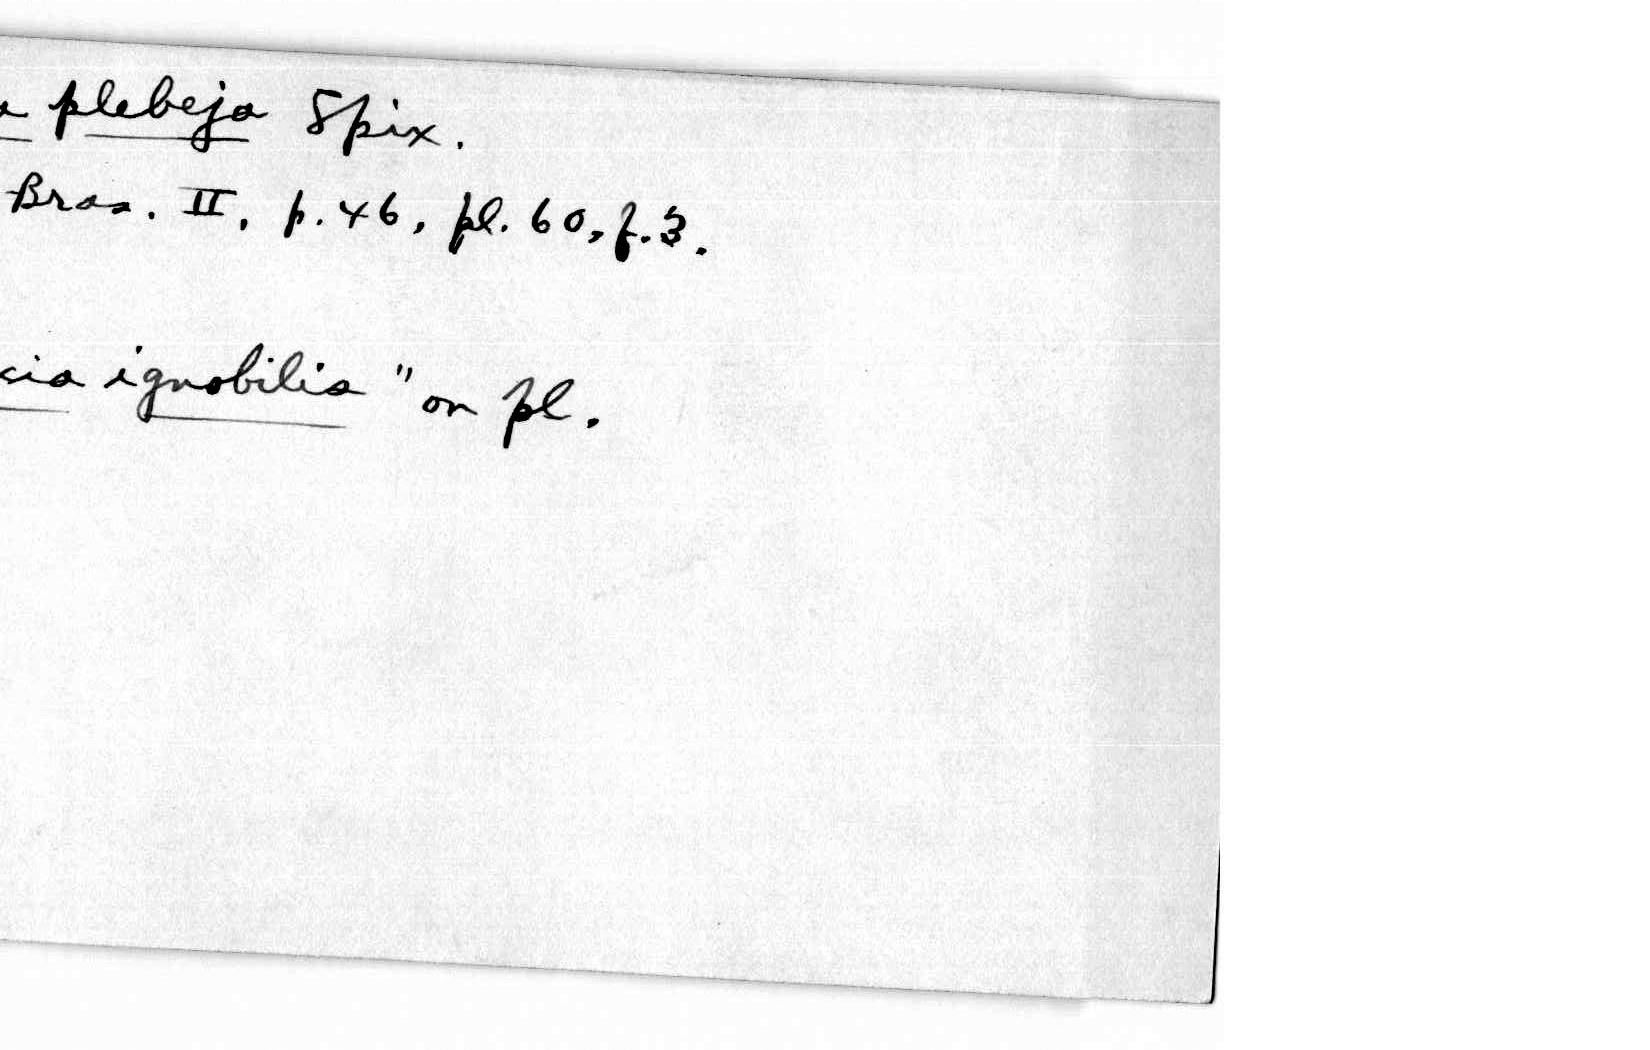 a plebeja Spix.
Bras. II, p. 46, pl. 60, f. 3.
cia ignobilis" on pl.